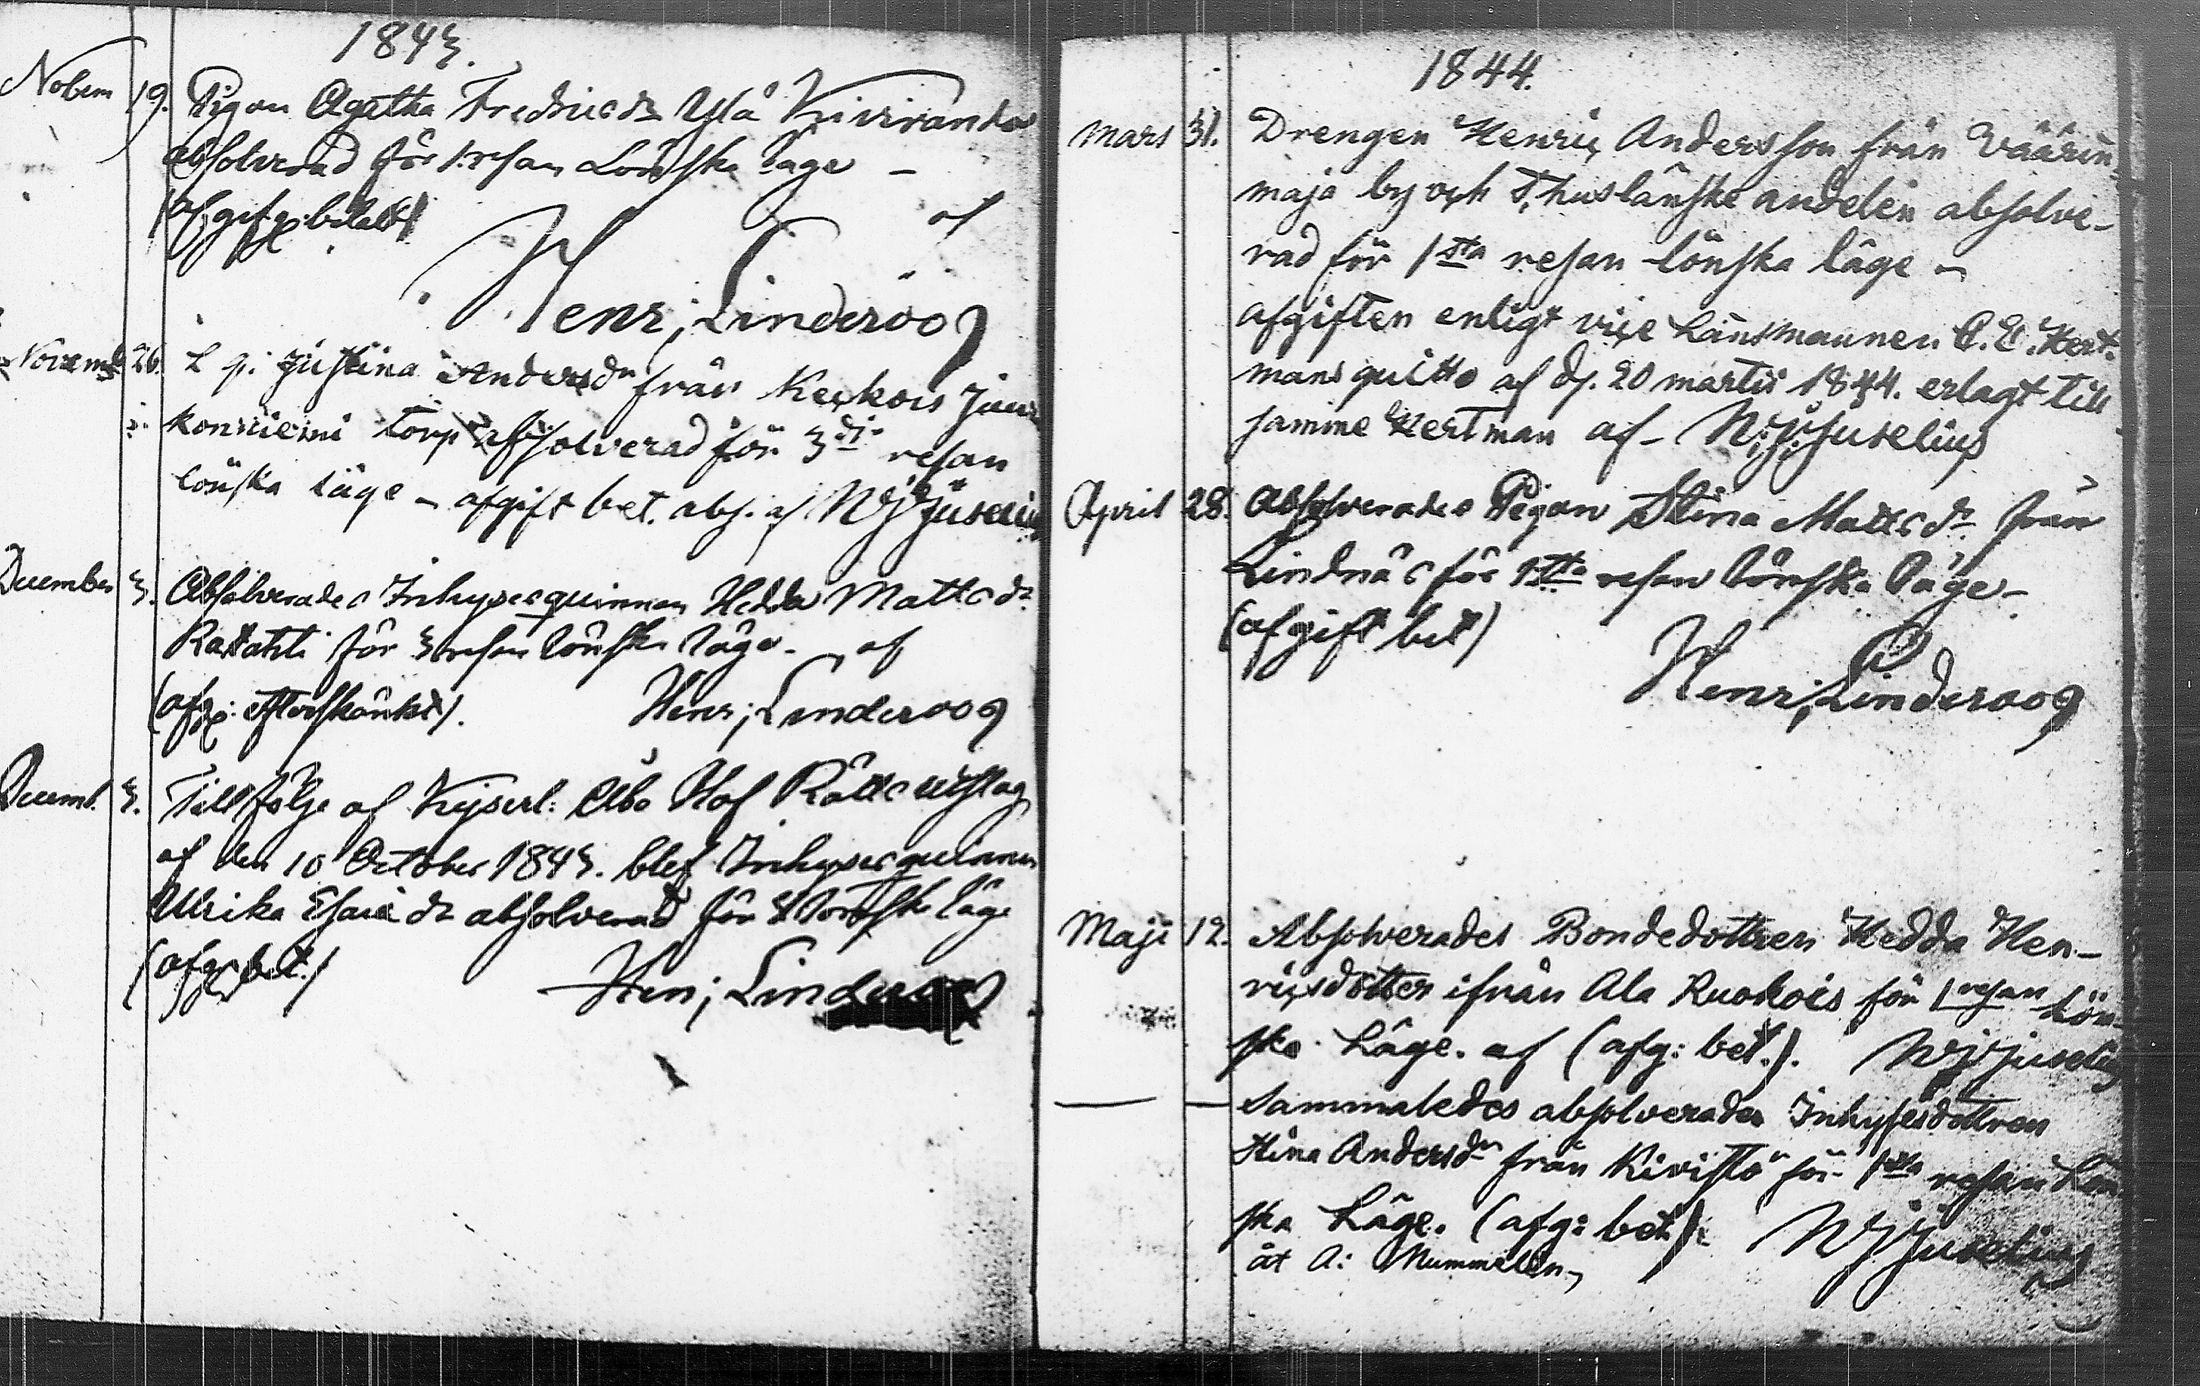 1843.
Novem 19. Pigan Agatha Fredricsdr Ylä Kiviranda
absolverad för 1 resan Lönska läge –
(afgift betalt) af
Henr; Linderoos
Novemb 26. L. q. Justina Andersdr från Keckois Jun
koniemi torp absolverad för 3dj. resan
lönska läge – afgift bet. abs. af Juselius
December 3. Absolverades Inhysesquinnan Hedda Mattsdr
för 3 resan lönska läge. af
(afg: efterskänkt). Henr; Linderoos
Decemb. 3. Till följe af Kejserl: Åbo Hof Rätts utslag
af den 10 October 1843. blef Inhysesquinnan
Ulrika Esaiædr absolverad för lönska läge
(afg bet.) Hen; Linderoos
1844.
Mars 31. Drengen Henric Andersson från Väärin
maja by och Thuslänske andelen absolve-
rad för 1sta resan lönska läge –
afgiften enligt vice Länsmannen C. E. Hert-
mans quitto af d. 20 martii 1844. erlagt till
samme Hertman af – Juselius
April 28. Absolverades Pigan Stina Mattsdr. från
Lindnäs för 1sta resan lönska läge –
(afgift bet)
Henr; Linderoos
Maji 12. Absolverades Bondedottren Hedda Hen-
ricsdotter ifrån Ala Ruokois för 1 resan Lön-
ska Läge. af (afg: bet.). Juselius
— — Sammaledes absolverades Inhysesdottren
Stina Andersdr från Kivistö för 1sta resan Lön
ska Läge. (afg: bet). Juselius
åt A: Mummelin